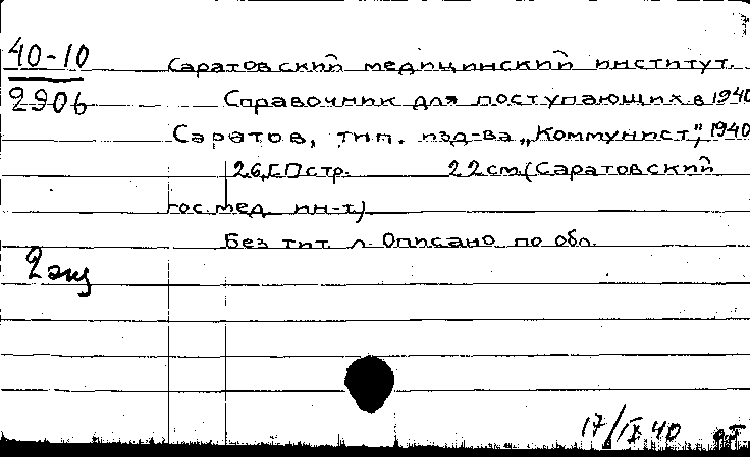 40-10
2906
Саратовский медицинский институт.
Справочник для поступающих в 1940
Саратов, тип. изд-ва „Коммунист", 1940
26, стр. 22см (Саратовский
гос. мед. ин-т)
Без тит. л. Описано по обл.
2 экз
17/IX 40